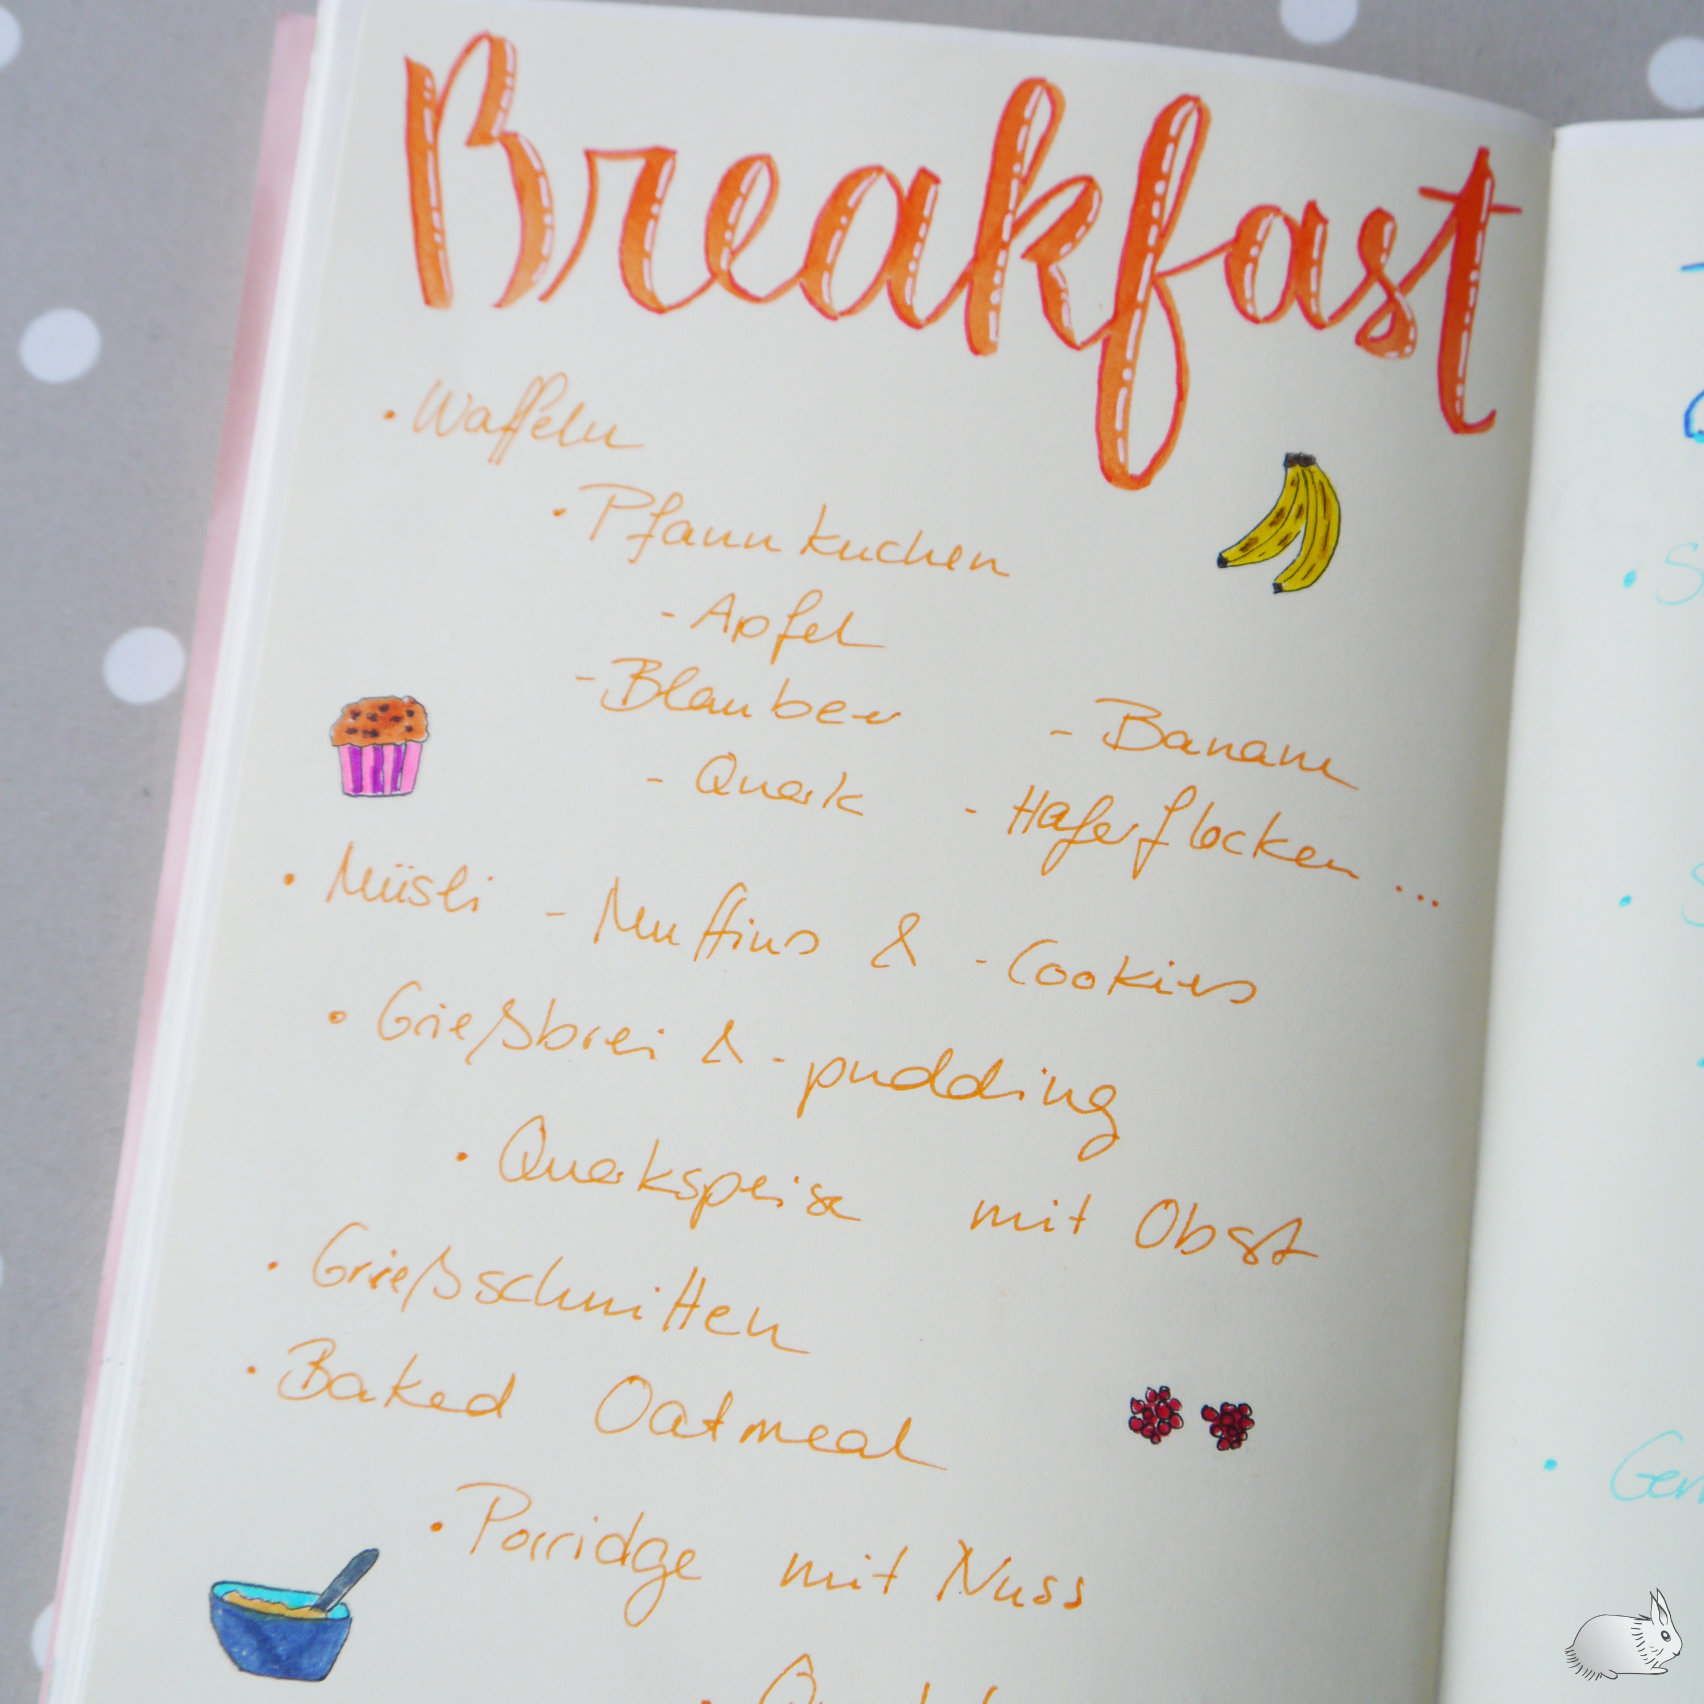 Breakfast
• Waffeln
• Pfannkuchen
- Apfel
- Blauber
- Banane
- Quark - Haferflocken ...
• Müsli - Muffins & - Cookies
• Grießbrei & - pudding
• Quarkspeise mit Obst
• Grießschnitten
• Baked Oatmeal
• Porridge mit Nuss